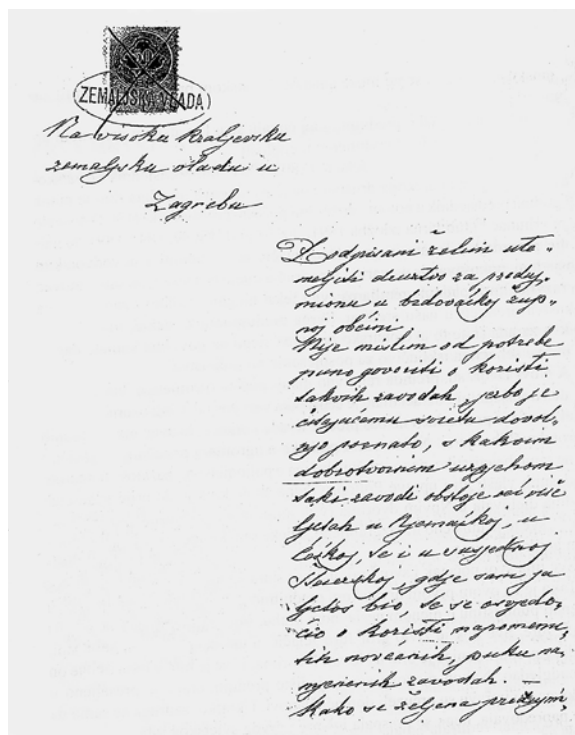 50
ZEMALJSKA VLADA
Na visoku kraljevsku
zemaljsku vladu u
Zagrebu
Podpisani želim ute„
meljiti družtvo za preduj„
mionu u brdovačkoj žup„
noj obćini
Nije mislim od potrebe
puno govoriti o koristi
takvih zavodah, jerbo je
čitajućemu svietu dovolj„
no poznato, s kakvim
dobrotvornim uspjehom
taki zavodi obstoje već više
ljetah u Njemačkoj, u
Českoj, te i u susjednoj
Štajerskoj, gdje sam ja
ljetos bio, te se osvjedo„
čio o koristi napomenu„
tih novčanih, puku na„
mjenjenih zavodah. —
Kako se željena predujm„